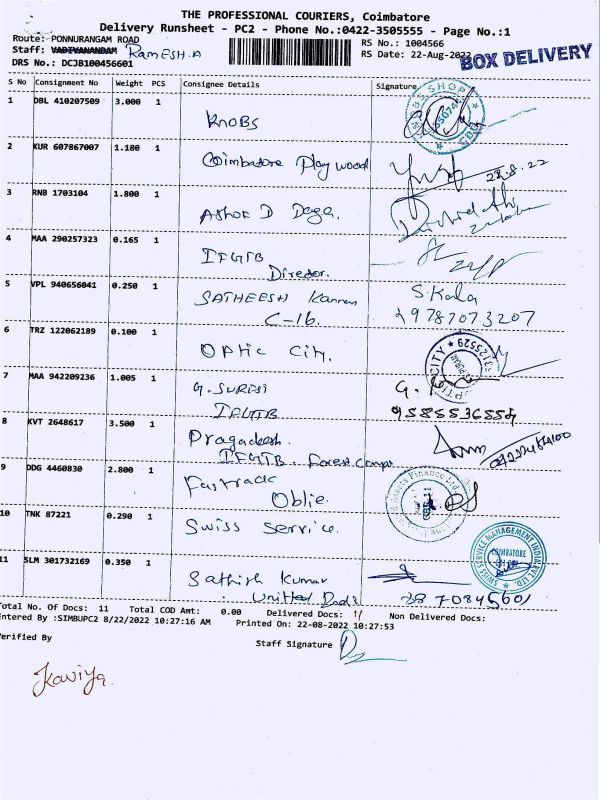 THE PROFESSIONAL COURIERS, Coimbatore
Delivery Runsheet - PC2 - Phone No.:0422-3505555 - Page No.:1
Route: PONNURANGAM ROAD
RS No.: 1004566
Staff: VADIVANANDAM RAMESH.A
RS Date: 22-Aug-2022
BOX DELIVERY
DRS No.: DCJB100456601
S No Consignment No Weight PCS Consignee Details Signature
1 DBL 410207509 3.000 1
KNOBS
2 KUR 607867007 1.100 1
Coimbatore Play wood
22.8.22
3 RNB 1703104 1.800 1
Ashok D Daga.
4 MAA 290257323 0.165 1
IFGTB
Director.
5 VPL 940656041 0.250 1
SATHEESH Kannan S.Kala
C-16. 9787073207
6 TRZ 122062189 0.100 1
OPtic City.
OPTIC CITY
7 MAA 942209236 1.005 1
G. SURESH G.
IFGTB
8 KVT 2648617 3.500 1
Pragadesh.
IFGTB Forest Campus
9 DDG 4460830 2.800 1
Fastrade
Oblie.
10 TNK 87221 0.290 1
Swiss Service.
SWISS SERVICE MANAGEMENT INDIA PVT LTD
COIMBATORE
11 SLM 301732169 0.350 1
Sathish Kumar
Total No. Of Docs: 11 Total COD Amt: 0.00 Delivered Docs: 11 Non Delivered Docs:
Entered By :SIMBUPC2 8/22/2022 10:27:16 AM Printed On: 22-08-2022 10:27:53
Verified By
Staff Signature
Kaviya.